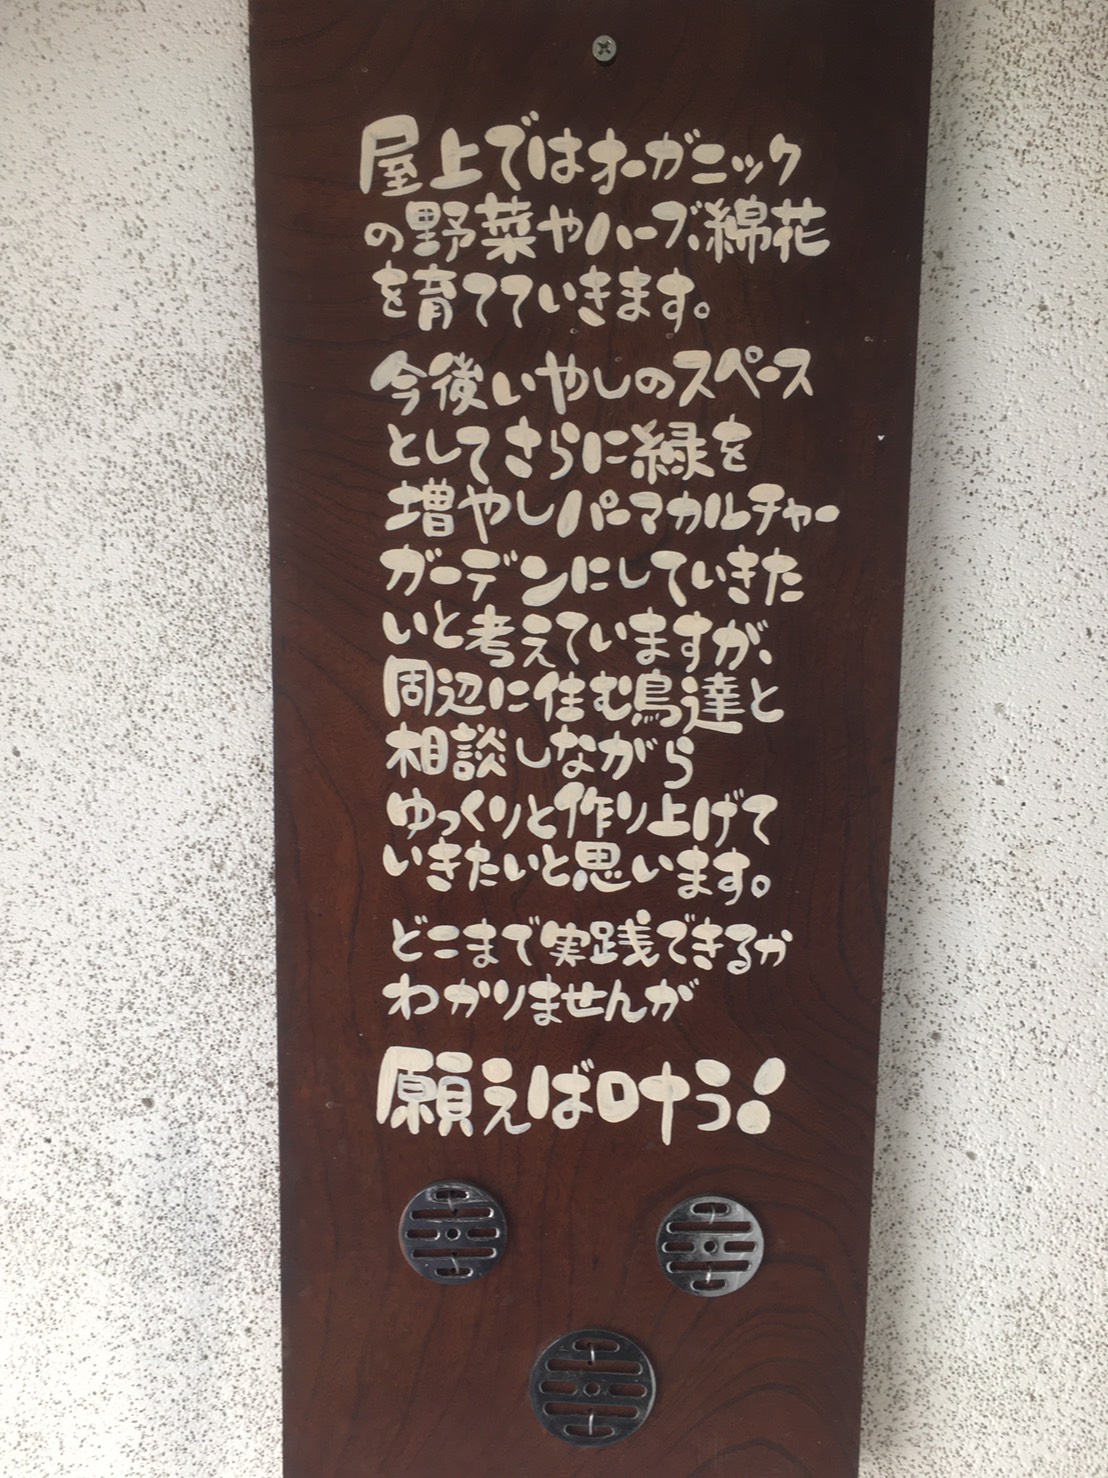 屋上ではオーガニック
の野菜やハーブ、綿花
を育てていきます。
今後いやしのスペース
としてさらに緑を
増やしパーマカルチャー
ガーデンにしていきた
いと考えていますが、
周辺に住む鳥達と
相談しながら
ゆっくりと作り上げて
いきたいと思います。
どこまで実践できるか
わかりませんが
願えば叶う!